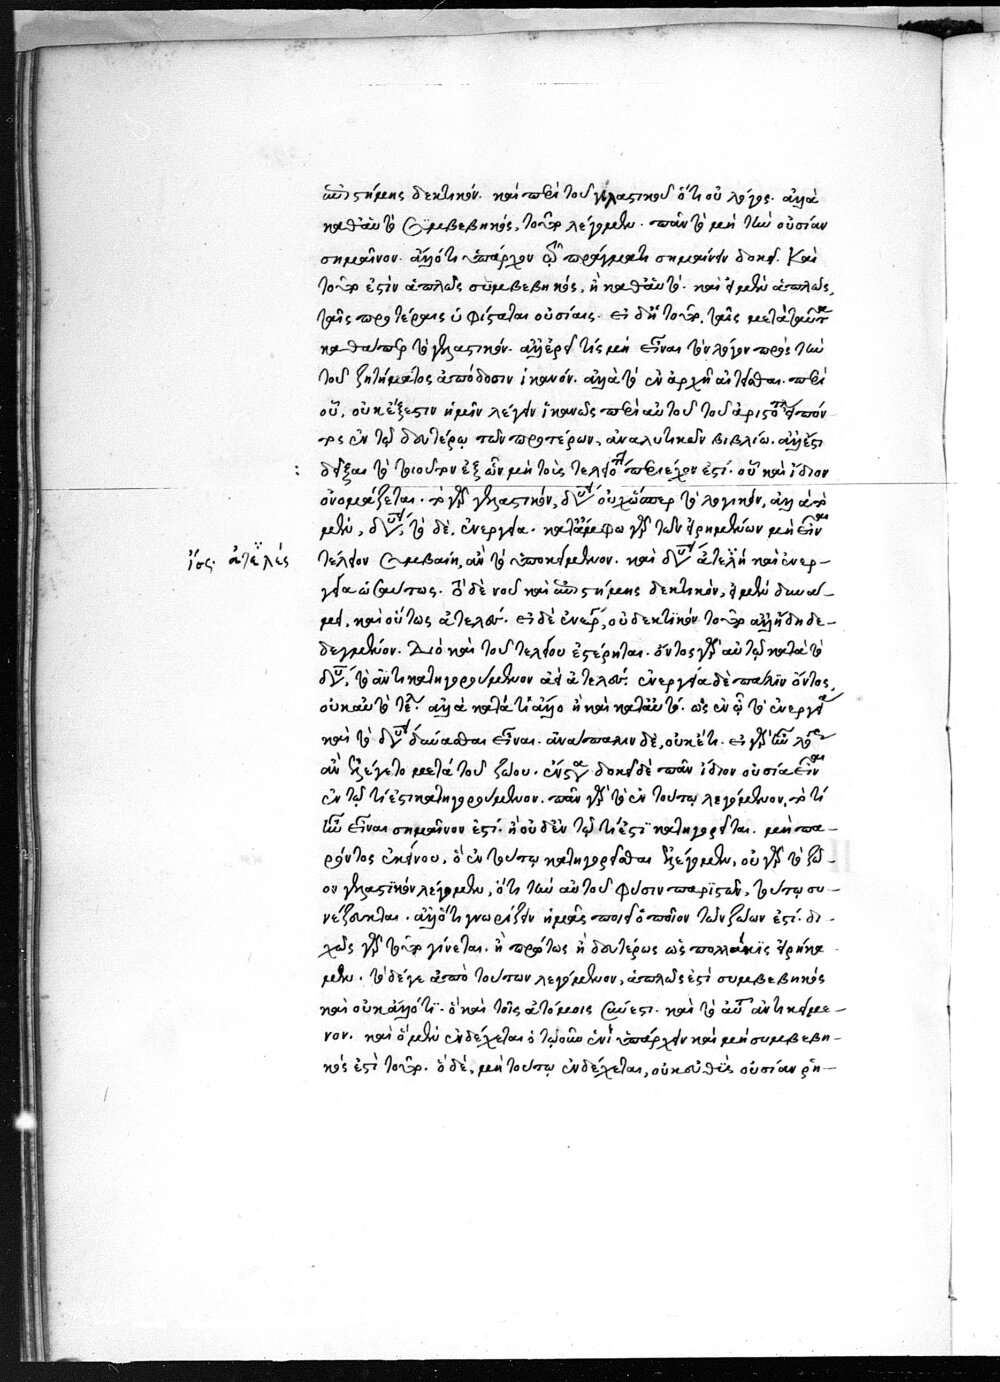 ἐπιστήμης δεκτικόν. καὶ περὶ τοῦ γελαστικοῦ ὅτι οὐ λόγος. ἀλλὰ
καθ' αὑτὸ συμβεβηκός, τοῦτο λέγομεν. πᾶν τὸ μὴ τὴν οὐσίαν
σημαῖνον. ἀλλ' ὅτι ὑπάρχον τῷ πράγματι σημαίνειν δοκεῖ. Καὶ
τοῦτο ἐστὶν ἁπλῶς συμβεβηκός, ἢ καθ' αὑτό. καὶ εἰ μὲν ἁπλῶς,
ταῖς προτέραις ὑφίσταται οὐσίαις. εἰ δὴ τοῦτο, ταῖς μετὰ ταῦτα
καθάπερ τὸ γελαστικόν. ἀλλ' ἐρεῖ τις μὴ εἶναι τὸν λόγον πρὸς τὴν
τοῦ ζητήματος ἀπόδοσιν ἱκανόν. ἀλλὰ τὸ ἐν ἀρχῇ αἰτεῖσθαι. περὶ
οὗ, οὐκ ἔξεστιν ἡμῖν λέγειν ἱκανῶς περὶ αὐτοῦ τοῦ ἀριστοτέλους εἰπόν
τος ἐν τῷ δευτέρῳ τῶν προτέρων, ἀναλυτικῶν βιβλίῳ. ἀλλ' ἔστι
δεῖξαι τὸ τοιοῦτον ἐξ ὧν μὴ τοῖς τελείοις περιέχον ἐστί. οὗ καὶ ἴδιον
ὀνομάζεται. τὸ γὰρ γελαστικόν, δυνάμει οὐχ ὥσπερ τὸ λογικόν, ἀλλὰ τὸ
μὲν, δυνάμει, τὸ δὲ, ἐνεργείᾳ. κατ' ἄμφω γὰρ τῶν εἰρημένων μὴ εἶναι
τέλειον συμβαίη, ἂν τὸ ὑποκείμενον. καὶ δυνάμει ἀτελῆ καὶ ἐνερ-
γείᾳ ὡσαύτως. ὁ δὲ νοῦ καὶ ἐπιστήμης δεκτικόν, εἰ μὲν δυνά-
μει, καὶ οὕτως ἀτελές. εἰ δὲ ἐνεργείᾳ, οὐ δεκτικόν τοῦτο ἀλλ' ἤδη δε-
δεγμένον. Διὸ καὶ τοῦ τελείου ἐστέρηται. ὄντος γὰρ αὐτῷ κατὰ τὸ
δυνάμει, τὸ ἀντικατηγορούμενον ἀεὶ ἀτελές. ἐνεργείᾳ δὲ πάλιν ὄντος,
οὐκ αὐτὸ τέλειον ἀλλὰ κατά τι ἄλλο ἢ καὶ κατ' αὐτό. ὡς ἐν ᾧ τὸ ἐνεργείᾳ
καὶ τὸ δυνάμει δύνασθαι εἶναι. ἀνάπαλιν δὲ, οὐκέτι. εἰ γὰρ ἦν λόγος
ἂν ἐλέγετο μετὰ τοῦ ζῴου. ἔνστασις δοκεῖ δὲ πᾶν ἴδιον οὐσία εἶναι
ἐν τῷ τί ἐστι κατηγορούμενον. πᾶν γὰρ τὸ ἐν τούτῳ λεγόμενον, τὸ τί
ἦν εἶναι σημαῖνον ἐστί. ἢ οὐδὲν τῷ τί ἐστὶ κατηγορεῖται. μὴ πα-
ρόντος ἐκείνου, ὃ ἐν τούτῳ κατηγορεῖσθαι ἐλέγομεν, οὐ γὰρ τὸ ζῷ-
ον γελαστικὸν λέγομεν, ὅτι τὴν αὐτοῦ φύσιν παριστῶν, τούτῳ συ-
νέζευκται. ἀλλ' ὅτι γνωρίζειν ἡμᾶς ποιεῖ ὁποῖον τῶν ζῴων ἐστί. δι-
χῶς γὰρ τοῦτο γίνεται. ἢ πρώτως ἢ δευτέρως ὡς πολλάκις εἰρήκα
μεν. τὸ δέ γε ἀπὸ τούτων λεγόμενον, ἁπλῶς ἐστὶ συμβεβηκός
καὶ οὐκ ἄλλό τι. ὃ καὶ τοῖς ἀτόμοις σύνεστι. καὶ τὸ αὐτῷ ἀντικείμε-
νον. καὶ ὃ μὲν ἐνδέχεται ὁτῳοῦν ἑνὶ ὑπάρχειν καὶ μὴ συμβεβη-
κός ἐστὶ τοῦτο. ὃ δὲ, μὴ τούτῳ ἐνδέχεται, οὐκ εὐθὺς οὐσίαν ῥη-
ἴσως. ἀτελές